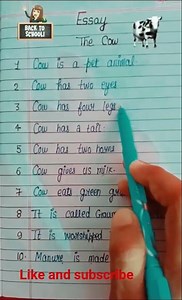 BACK TO
SCHOOL!
Essay
The Cow
1 Cow is a pet animal
2 Cow has two eyes
3 Cow has four legs
4 Cow has a tail
5 Cow has two horns
6 Cow gives us milk.
7 Cow eats green
8 It is called
9 It is worshipped
10. Manure is made
Like and subscribe